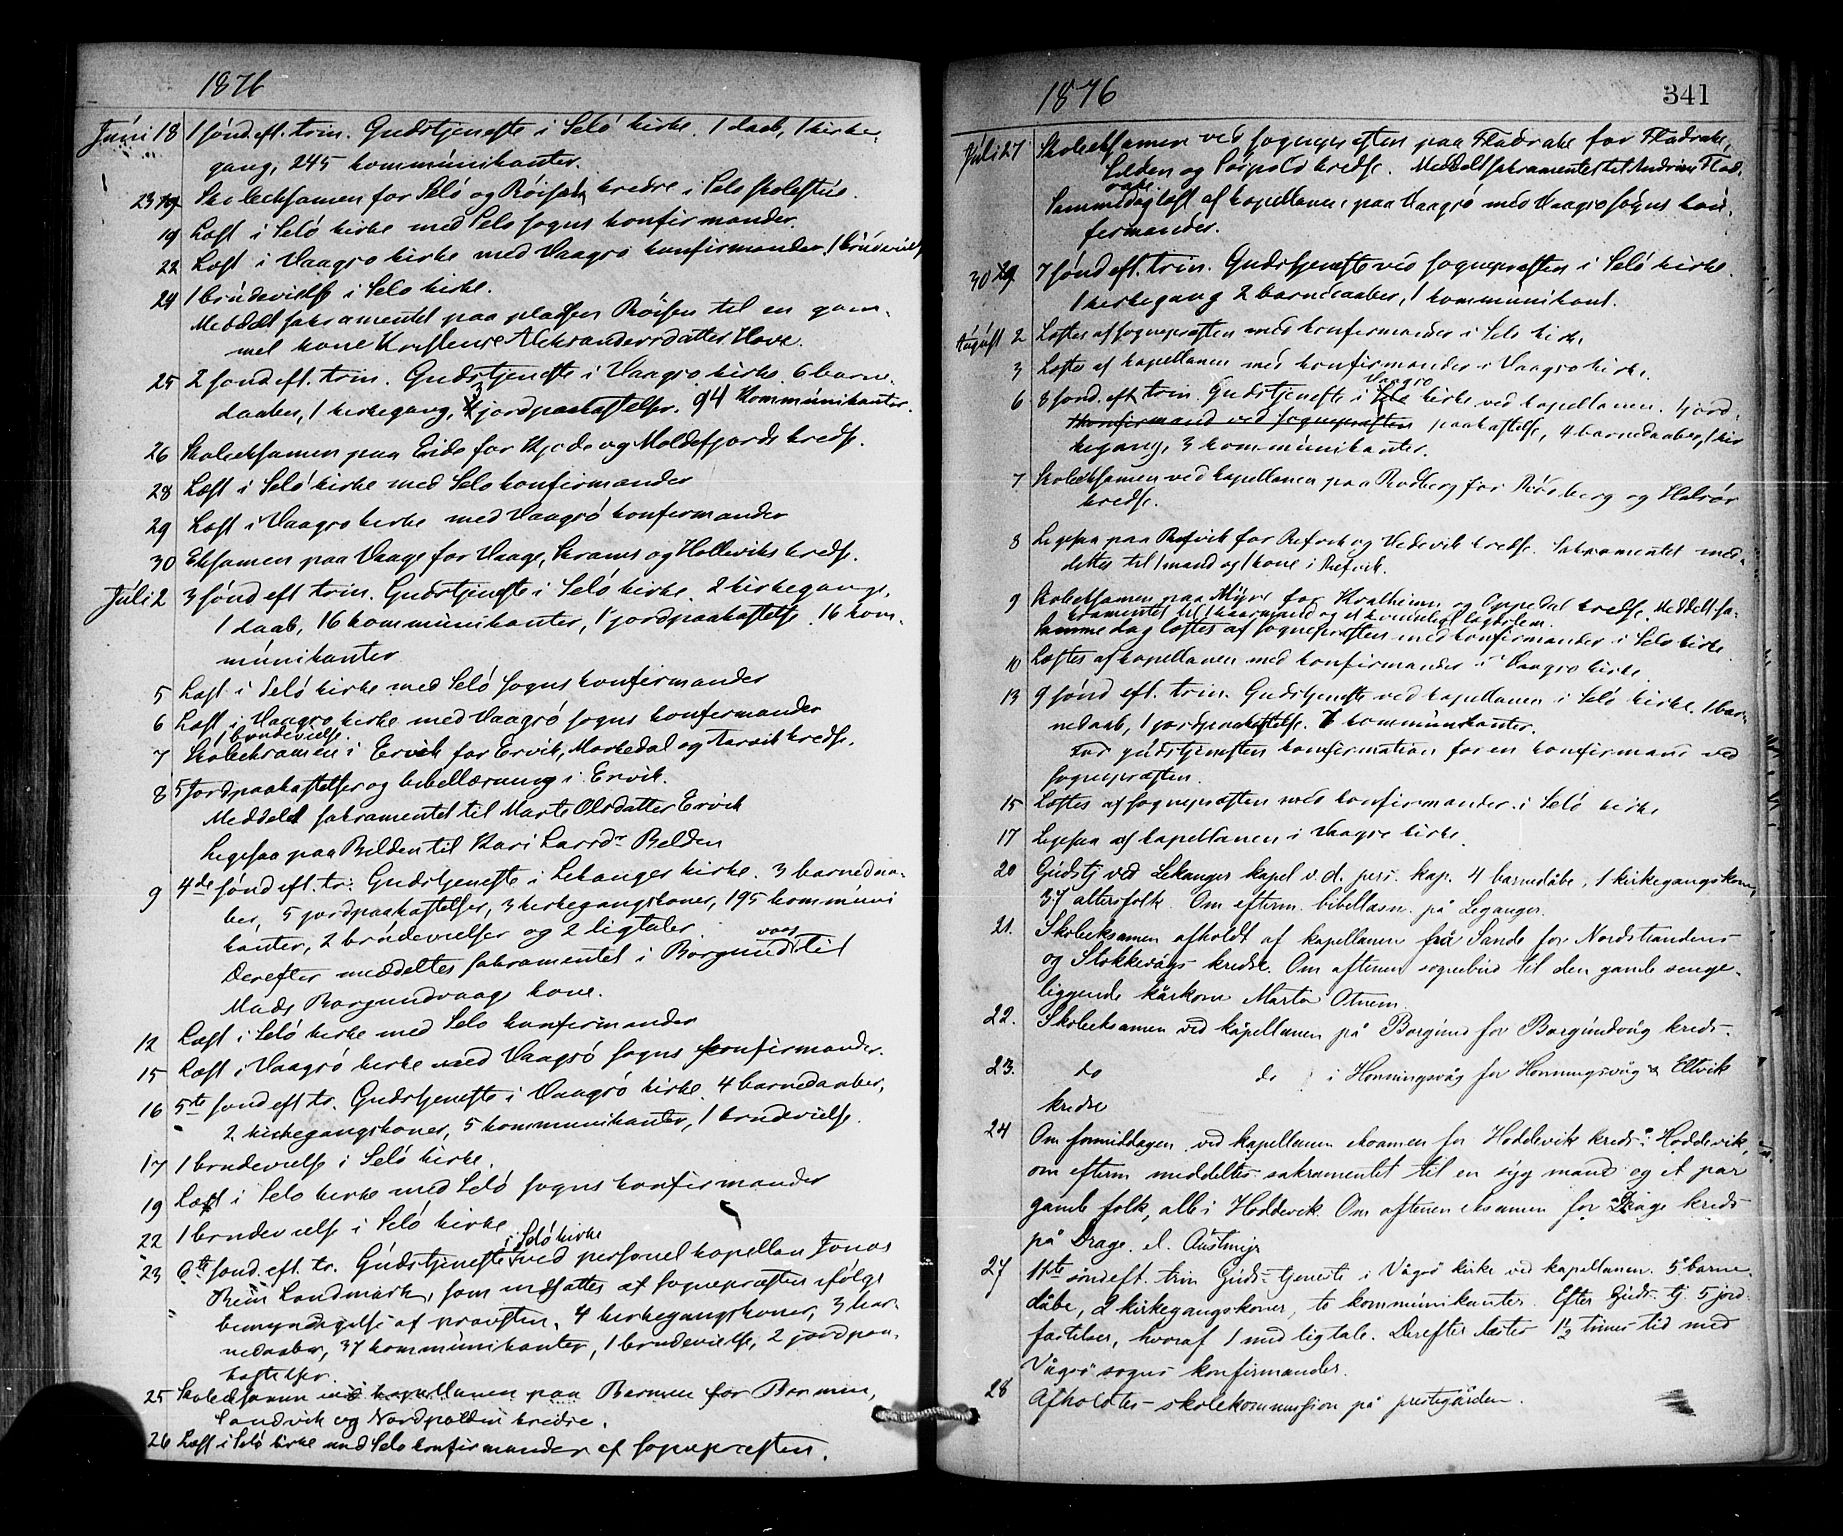 1876
Juni 18 1 sønd eft. trin. Gudstjeneste i Selø kirke. 1 daab, 1 kirke-
gang, 245 kommunikanter.
23 Skoleeksamen for Selø og Røisen kredse i Selø skolestue.
19 Læst i Selø kirke med Selø sogns konfirmander.
22 Læst i Vaagsø kirke med Vaagsø konfirmander. 1 brudevielse
24 1 brudevielse i Selø kirke.
Meddelt sakramentet paa pladsen Røisen til en gam-
mel kone Kristense Aleksandersdatter Hove.
25 2 sønd eft. trin. Gudstjeneste i Vaagsø kirke. 6 barne-
daaber, 1 kirkegang, 3 jordpaakastelser. 94 kommunikanter.
26 Skoleeksamen paa Eide for Kjøde og Moldefjords kreds.
28 Læst i Selø kirke med Selø konfirmander
29 Læst i Vaagsø kirke med Vaagsø konfirmander
30 Eksamen paa Vaage for Vaage, Skrams og Holleviks kreds.
Juli 2 3 sønd eft. trin. Gudstjeneste i Selø kirke. 2 kirkegange,
1 daab, 16 kommunikanter, 1 jordpaakastelse. 16 kom-
munikanter
5 Læst i Selø kirke med Selø sogns konfirmander
6 Læst i Vaagsø kirke med Vaagsø sogns konfirmander
1 brudevielse.
7 Skoleeksamen i Ervik for Ervik, Morkedal og Aarvik kreds.
8 5 jordpaakastelser og bibellæsning i Ervik.
Meddelt sakramentet til Marte Olsdatter Ervik
Ligesaa paa Belden til Kari Larsdr Belden
9 4de sønd eft. tr. Gudstjeneste i Lekanger kirke. 3 barnedaa-
ber, 5 jordpaakastelser, 3 kirkegangskoner, 195 kommuni
kanter, 2 brudevielser og 2 ligtaler.
Derefter meddeltes sakramentet i Borgundvaag til
Mads Borgundvaags kone.
12 Læst i Selø kirke med Selø konfirmander
15 Læst i Vaagsø kirke med Vaagsø sogns konfirmander.
16 5te sønd eft tr. Gudstjeneste i Vaagsø kirke. 4 barnedaaber,
2 kirkegangskoner, 5 kommunikanter, 1 brudevielse.
17 1 brudevielse i Selø kirke.
19 Læst i Selø kirke med Selø sogns konfirmander
22 1 brudevielse i Selø kirke
23 6te sønd. eft. tr. Gudstjeneste i Selø kirke ved personel kapellan Jonas
Rein Landmark, som indsattes af sognepræsten ifølge
bemyndigelse af provsten. 4 kirkegangskoner, 3 bar-
nedaaber, 37 kommunikanter, 1 brudevielse, 2 jordpaa-
kastelser.
25 Skoleeksamen ved kapellanen paa Barmen for Barmen,
Sandvik og Nordpollen kredse.
26 Læst i Selø kirke med Selø konfirmander af sognepræsten.
1876 341
Juli 27 Skoleeksamen ved sognepræsten paa Flatrake for Flatrake,
og kredse. Meddelt sakramentet til Flat-
rake.
Sammedag læst af kapellanen paa Vaagsø med Vaagsø sogns kon-
firmander.
30 7 sønd eft. trin. Gudstjeneste ved sognepræsten i Selø kirke.
1 kirkegang 2 barnedaaber, 1 kommunikant.
August 2 Læstes af sognepræsten med konfirmander i Selø kirke
3 Læstes af kapellanen med konfirmander i Vaagsø kirke.
6 8 sønd. eft trin. Gudstjeneste i Vaagsø kirke ved kapellanen. 1 jord-
1 konfirmand ved sognepræsten paakastelse, 4 barnedaaber, 1 kir
kegang, 3 kommunikanter.
7 Skoleeksamen ved kapellanen paa Rødberg for Rødberg og Halsør
kreds.
8 Ligesaa paa Refvik for Refvik og Vedevik kreds. Sakramentet med-
deltes til 1 mand og 1 kone i Refvik.
9 Skoleeksamen paa Myre for og Oppedal kreds. Meddelt sa-
kramentet til
Samme dag læstes af sognepræsten med konfirmander i Selø kirke.
10 Læstes af kapellanen med konfirmander i Vaagsø kirke.
13 9 sønd eft. trin. Gudstjeneste ved kapellanen i Selø kirke. 1 bar-
nedaab, 1 jordpaakastelse. 7 kommunikanter.
Før gudstjenesten konfirmation for en konfirmand ved
sognepræsten.
15 Læstes af sognepræsten med konfirmander i Selø kirke
17 Ligesaa af kapellanen i Vaagsø kirke.
20 Gudstj ved Lekanger kapel v. d. pers. kap. 4 barnedåbe, 1 kirkegangskone,
37 altersfolk. Om efterm. bibellæsn. på Leganger.
21. Skoleeksamen afholdt af kapellanen på Sande for Nordstrandens
og Stokkevågs kredse. Om aftenen sognebud til den gamle senge-
liggende kårkone Marta Otnem.
22. Skoleeksamen ved kapellanen på Borgund for Borgundvåg kreds.
23. do do i Honningsvåg for Honningsvåg & Eltvik
kredse
24 Om formiddagen ved kapellanen eksamen for Hoddevik kreds i Hoddevik,
om efterm meddeltes sakramentet til en syg mand og et par
gamle folk, alle i Hoddevik. Om aftenen eksamen for Drage kreds
på Drage. el. Austmyr
27 11te sønd eft. trin Guds-tjeneste i Vågsø kirke ved kapellanen. 5 barne-
dåbe, 2 kirkegangskoner, to kommunikanter. Efter Guds. tj. 5 jord-
fæstelser, hvoraf 1 med ligtale. Derefter læstes 1½ times tid med
Vågsø sogns konfirmander.
28 Afholdtes skolekommission på prestegården.